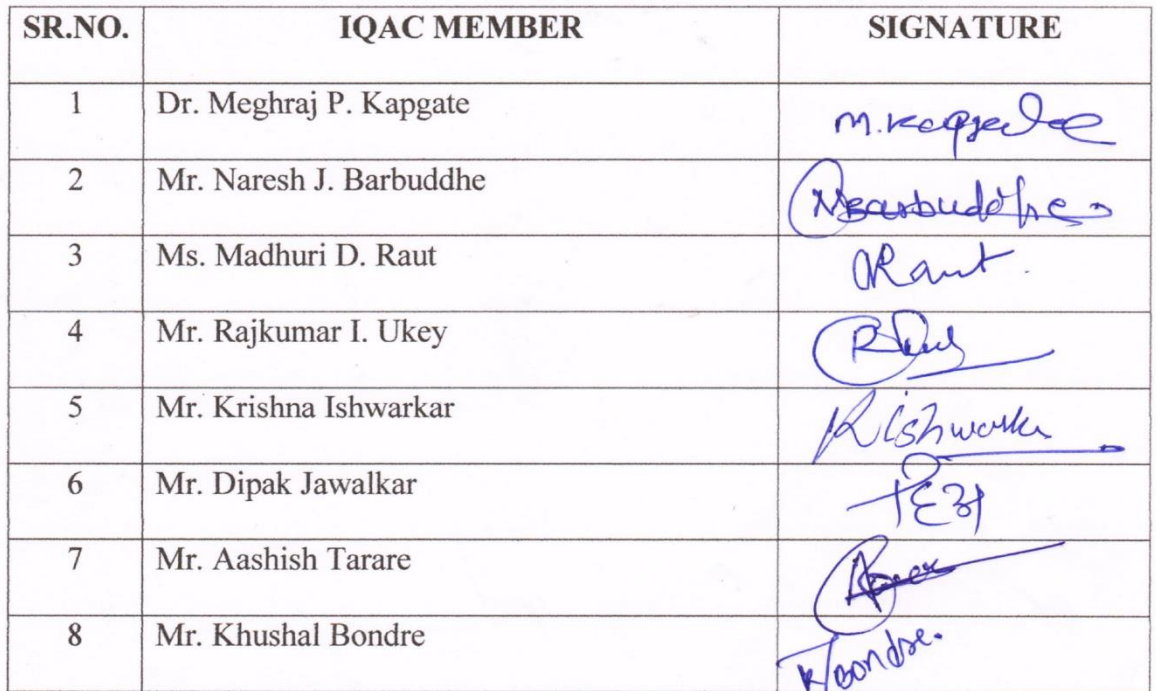 SR.NO. IQAC MEMBER SIGNATURE
1 Dr. Meghraj P. Kapgate M.Kapgate
2 Mr. Naresh J. Barbuddhe NBarbuddhe
3 Ms. Madhuri D. Raut Raut
4 Mr. Rajkumar I. Ukey
5 Mr. Krishna Ishwarkar KIshwarkar
6 Mr. Dipak Jawalkar
7 Mr. Aashish Tarare
8 Mr. Khushal Bondre KBondre.